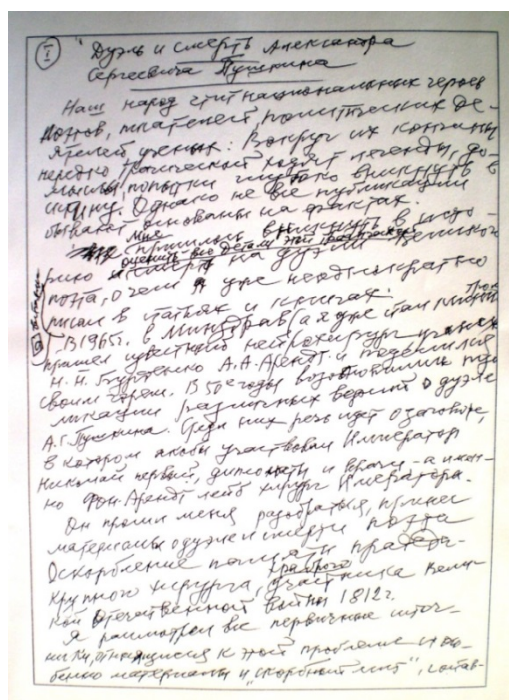 I "Дуэль и смерть Александра
Сергеевича Пушкина
Наш народ чтит национальных героев
поэтов, писателей, политических де-
ятелей ученых. Вокруг их кончины
нередко трагической ходят легенды, до-
мыслы, попытки глубоко вникнуть в
истину. Однако не все публикации
бывают основаны на фактах.
мне пришлось вникнуть в исто-
оценить все детали этой
рию и смерти на дуэли великого
поэта, о чем я уже неоднократно
писал в статьях и книгах.
В 1965г. в Минздрав (а я уже стал
пришел известный нейрохирург ученик
Н.Н. Бурденко А.А. Арендт и поделился
своим горем. В 50е годы возобновились пуб-
ликации различных версий о дуэле
А.С. Пушкина. Среди них речь идет о заговоре,
в котором якобы участвовал Император
Николай первый, дипломаты и врачи - а имен-
но фон-Арендт лейб хирург Императора.
Он просил меня разобраться, принес
материалы о дуэле и смерти поэта
Оскорбление памяти прадеда-
крупного хирурга, храброго участника Вели-
кой Отечественной войны 1812г.
Я рассмотрел все первичные источ-
ники, относящиеся к этой проблеме и осо-
бенно материалы и "скорбный лист", состав-